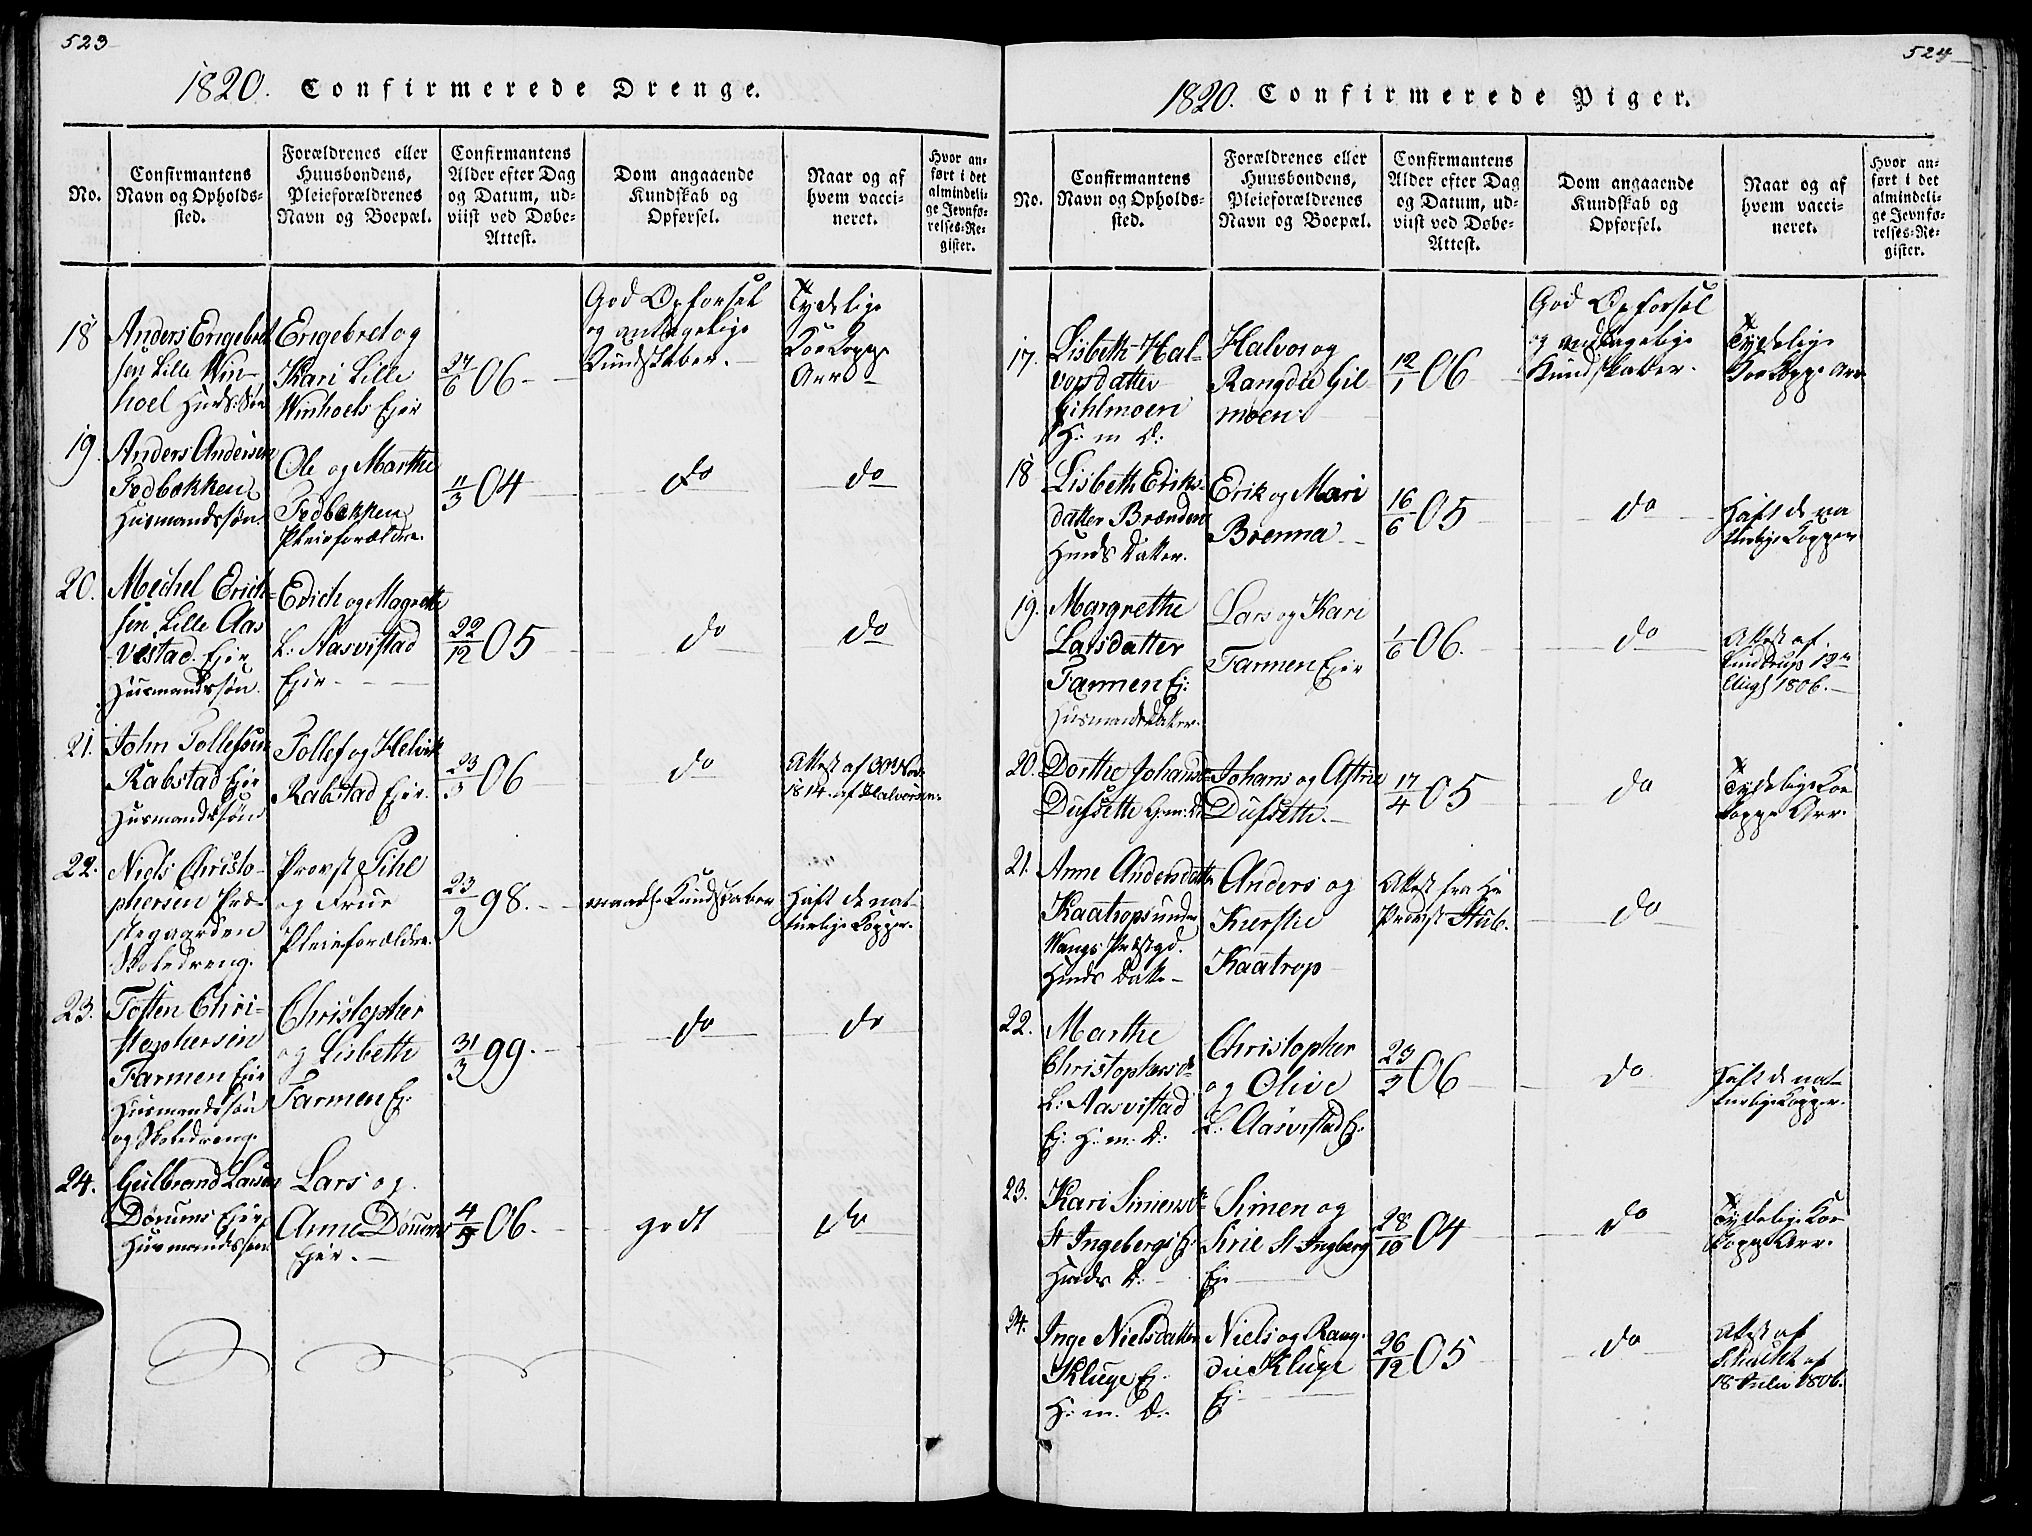 523
1820. Confirmerede Drenge.
No.
Confirmantens
Navn og Opholds-
sted.
Forældrenes eller
Huusbondens,
Pleieforældrenes
Navn og Boepæl.
Confirmantens
Alder efter Dag
og Datum, ud-
viist ved Døbe-
Attest.
Dom angaaende
Kundskab og
Opførsel.
Naar og af
hvem vacci-
neret.
Hvor an-
ført i det
almindeli-
ge Jevnfø-
relses-Re-
gister.
18
Anders Engebret
sen Lille Win-
hoel Huds: Søn
Engebret og
Kari Lille
Winhoels Ejer
27/6 06
God Opførsel
og antagelige
Kundskaber.
Tydelige
Koe Kopp
Arr
19.
Anders Andersen
Tedbekken
Husmandssøn.
Ole og Marthe
Tedbekken
Pleieforældre.
11/3 04
do
do
20.
Mechel Erich-
sen Lille Aas
vestad. Ejer
Husmandssøn.
Erich og Magrethe
L: Aasvistad
Ejer
22/12 05
do
do
21.
John Tollefsen
Rabstad Ejer
Husmandssøn
Tollef og Helvik
Rabstad Ejer.
23/3 06
do
Attest af 30 Nov
1814. af Halvorsen.
22.
Niels Christo-
phersen Præ-
stegaarden
Skoledreng.
Provst Pihl
og Frue
Pleieforældre.
23/9 98.
maadel. Kundskaber
Haft de nat-
turlige Kopper.
23.
Tosten Chri-
stophersen
Farmen Ejer
Husmandssøn
og Skoledreng.
Christopher
og Lisbeth
Farmen Ej:
31/3 99.
do
do
24.
Gulbrand Larsen
Dørums Ejer
Husmandssøn.
Lars og
Anne Dørums
Ejer.
4/5 06.
godt
do
524
1820. Confirmerede Piger.
No.
Confirmantens
Navn og Opholds-
sted.
Forældrenes eller
Huusbondens,
Pleieforældrenes
Navn og Boepæl.
Confirmantens
Alder efter Dag
og Datum, ud-
viist ved Døbe-
Attest.
Dom angaaende
Kundskab og
Opførsel.
Naar og af
hvem vacci-
neret.
Hvor an-
ført i det
almindeli-
ge Jevnfø-
relses-Re-
gister.
17.
Lisbeth Hal-
vorsdatter
Gihlmoen
H: m D:
Halvor og
Rangdie Gil
moen:
12/1 06
God Opførsel
og antagelige
Kundskaber.
Tydelige
Koe Kopp Arr
18
Lisbeth Eriks-
datter Brænden
Huuds Datter.
Erik og Mari
Brenna
16/6 05
do
Haft de na
turlige Kopper
19.
Margrethe
Larsdatter
Farmen Ej:
Husmands Datter.
Lars og Kari
Farmen Ejer
1/6 06.
do
Attest af
1806.
20.
Dorthe Johans
Dufseth H:m:D:
Johans og Astrie
Dufseth.
17/4 05
do
Tydelige Koe
Kopp Arr.
21.
Anne Andersdatter
Kaatrops under
Wangs Præstgd.
Huuds Datter
Anders og
Kierstie
Kaatrop
Attest fra Hr
Provst Stub.
do
22.
Marthe
Christophersdr
L: Aasvistad
Ej: H: m: D:
Christopher
og Olive
L: Aasvistad Ej:
23/2 06
do
Haft de nat-
turlige Kopper.
23.
Kari Simensdr
St Ingebergs Ej:
Huuds D:
Simen og
Sirie St Ingberg
Eje
28/10 04
do
Tydelige Koe
Kopp Arr.
24.
Inge Nielsdatter
Kluge Ej.
H: m. D.
Niels og Rang-
die Kluge
Ej
26/12 05
do
Attest af
Schultz af
18 Julii 1806.